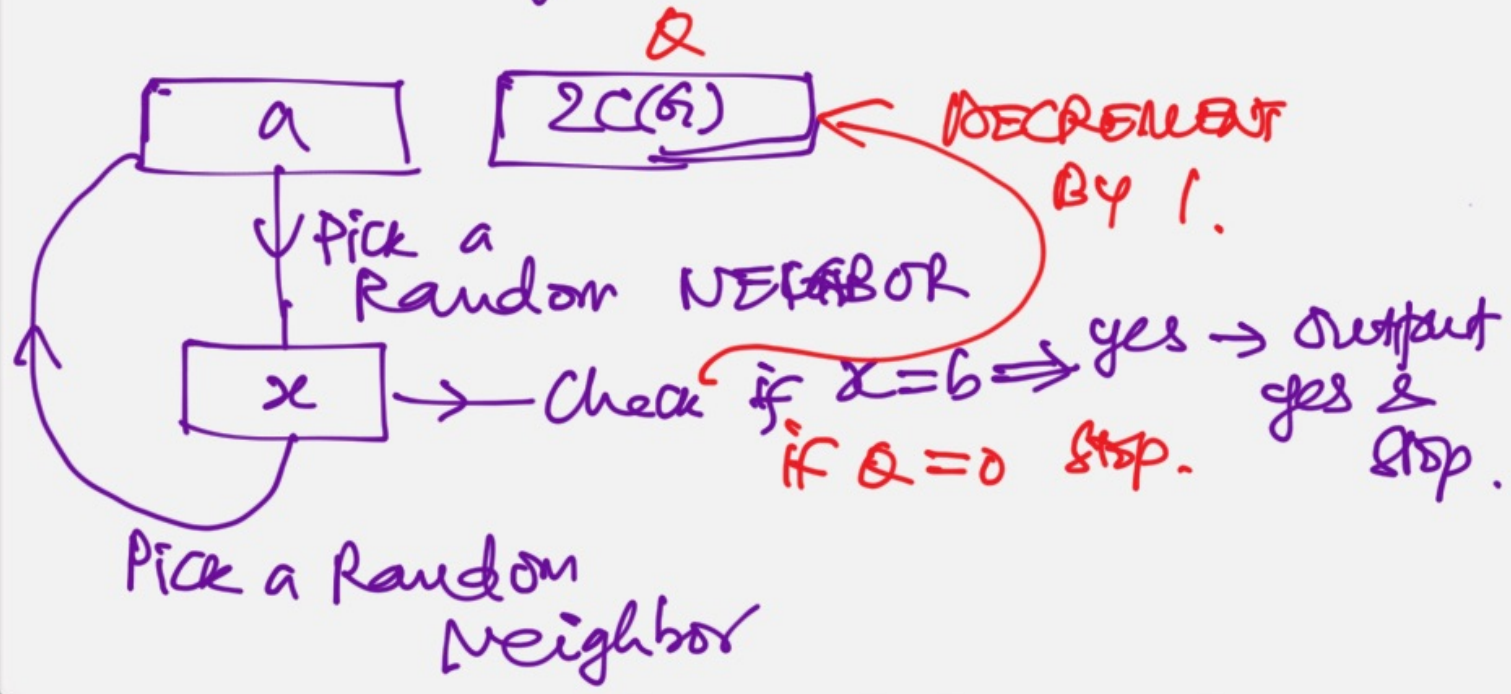 Q
a
2C(G)
DECREMENT
BY 1.
Pick a
Random NEIGHBOR
x → Check if x=b ⇒ yes → output
yes &
stop.
if Q=0 stop.
Pick a Random
Neighbor